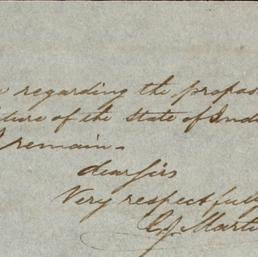 regarding the propos
ture of the state of Ind
remain.
dear sirs
Very respectfully
Marti